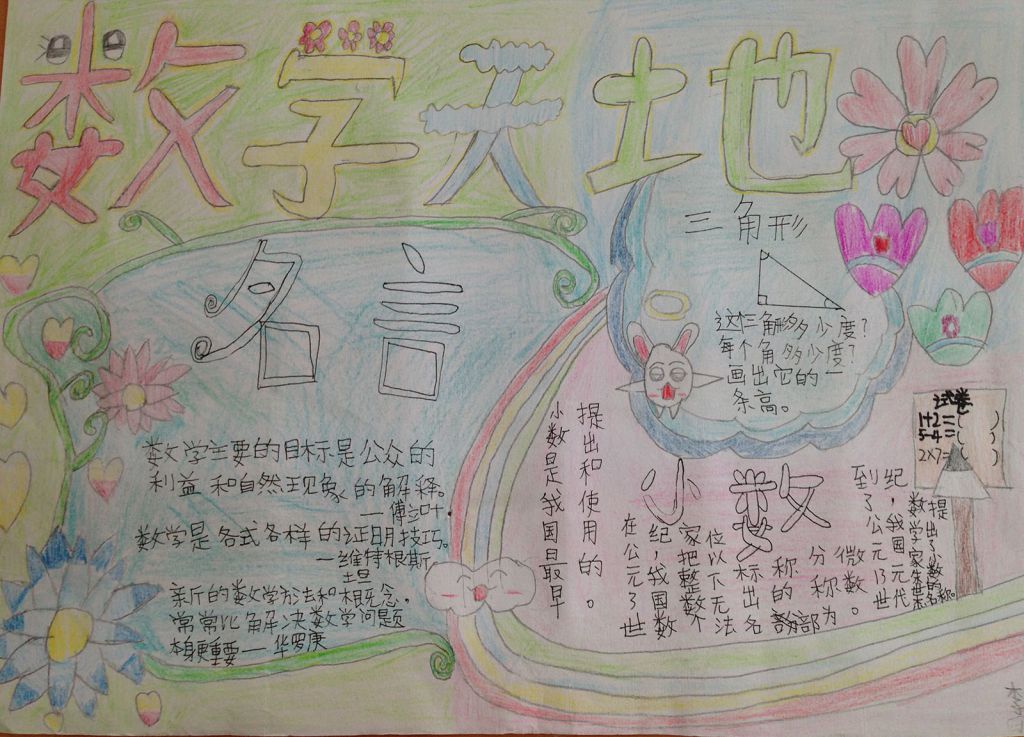 数学天地
名言
数学主要的目标是公众的
利益和自然现象的解释。
—傅立叶。
数学是各式各样的证明技巧。
—维特根斯
坦
新的数学方法和概念,
常常比解决数学问题
本身更重要—华罗庚
三角形
这三角形多少度?
每个角多少度?
画出它的一
条高。
试卷
1+2=( )
5-4=( )
2×7=( )
小数
小数是我国最早
提出和使用的。
在公元了世
纪,我国数
家把整数个
位以下无法
标出名
称的部
分称为
微数。
到了公元13世
纪,我国元代
数学家朱世杰
提出了小数名称。